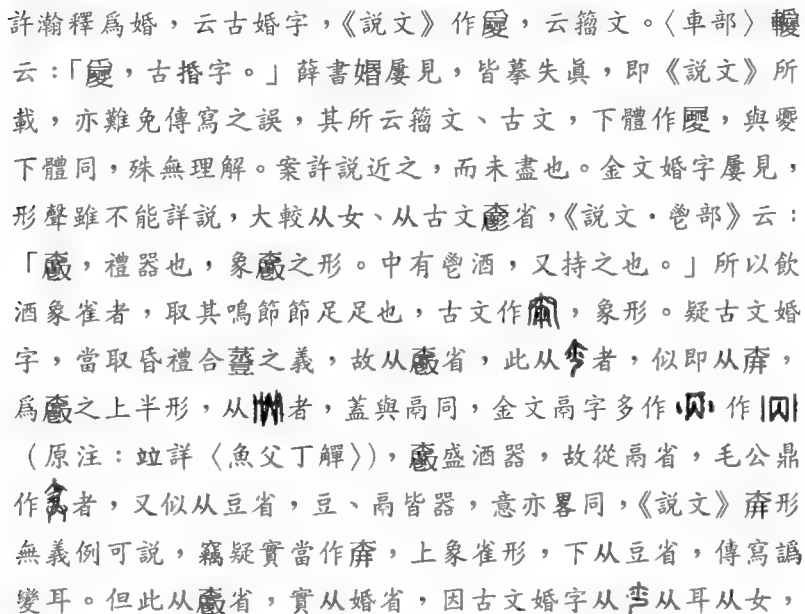 許瀚釋爲婚，云古婚字，《説文》作𡢘，云籀文。〈車部〉𨏒
云：「𡢘，古㨉字。」薛書婚屢見，皆摹失眞，即《説文》所
載，亦難免傳寫之誤，其所云籀文、古文，下體作，與夒
下體同，殊無理解。案許説近之，而未盡也。金文婚字屢見，
形聲雖不能詳説，大較从女、从古文爵省，《説文·鬯部》云：
「，禮器也，象之形。中有鬯酒，又持之也。」所以飲
酒象雀者，取其鳴節節足足也，古文作，象形。疑古文婚
字，當取昏禮合巹之義，故从省，此从者，似即从，
爲之上半形，从者，蓋與鬲同，金文鬲字多作作
（原注：竝詳〈魚父丁觶〉），盛酒器，故從鬲省，毛公鼎
作者，又似从豆省，豆、鬲皆器，意亦畧同，《説文》形
無義例可説，竊疑實當作，上象雀形，下从豆省，傳寫譌
變耳。但此从省，實从婚省，因古文婚字从从耳从女，